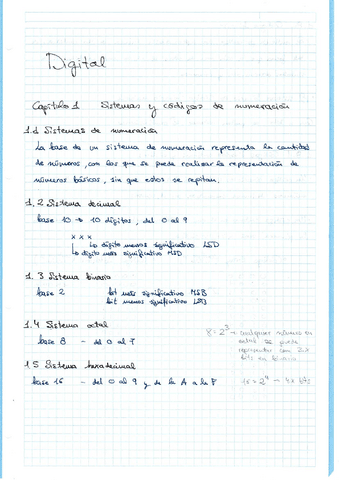 Digital
Capítulo 1 Sistemas y códigos de numeración
1.1 Sistemas de numeración
La base de un sistema de numeración representa la cantidad
de números, con los que se puede realizar la representación de
números básicos, sin que estos se repitan.
1.2 Sistema decimal
base 10 → 10 dígitos, del 0 al 9
x x x
↳ dígito menos significativo LSD
↳ dígito más significativo MSD
1.3 Sistema binario
base 2 bit más significativo MSB
bit menos significativo LSB
1.4 Sistema octal
base 8 - del 0 al 7
8 = 2³ → cualquier número en
octal se puede
representar con
bits en binario
1.5 Sistema hexadecimal
base 16 - del 0 al 9 y de la A a la F
16 = 2⁴ → 4 bits